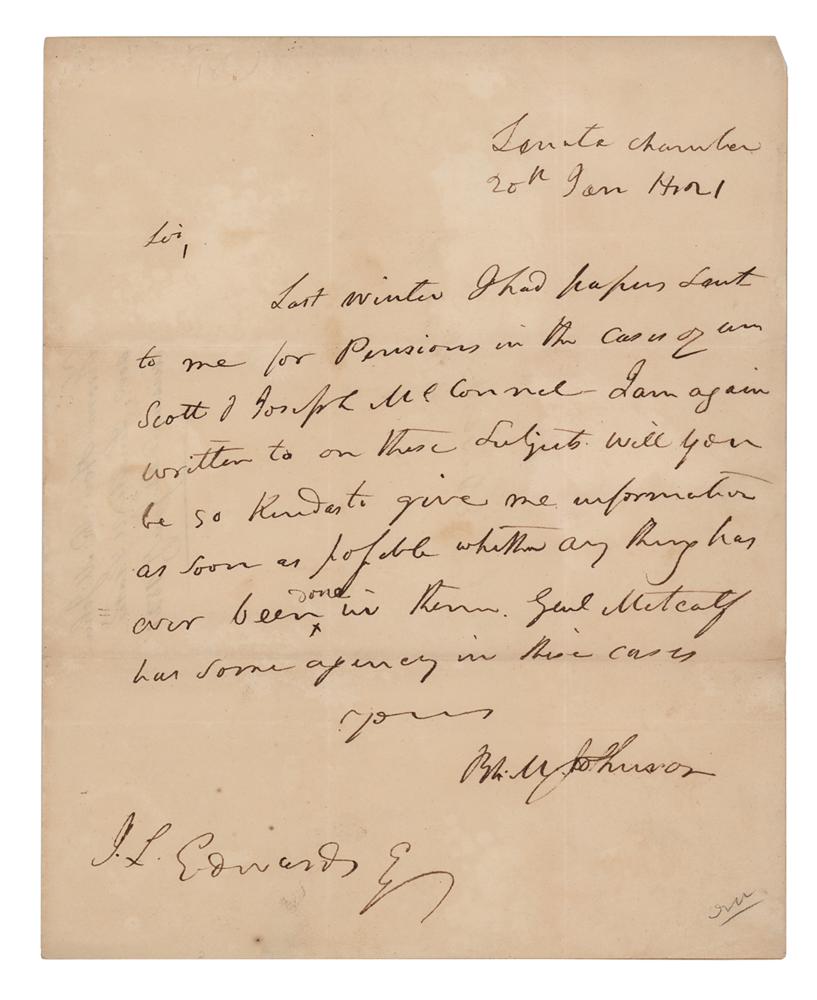 Senate chamber
20th Jan
Sir,
Last winter I had papers sent
to me for Pensions in the cases of
Scott & Joseph McConnel - I am again
written to on these subjects. will you
be so kind as to give me information
as soon as possible whether any thing has
ever been done in them. Genl Metcalf
has some agency in these cases
yours
Rh. M. Johnson
J. L. Edwards Esq